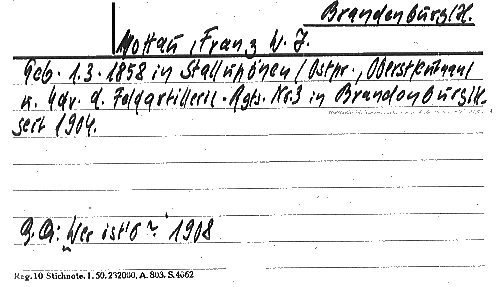 Brandenburg/H.
Mottau, Franz W. J.
Geb. 1.3.1858 in Stallupönen/Ostpr., Oberstleutnant
u. Kdr. d. Feldartillerie-Regts. Nr.3 in Brandenburg/H.
seit 1904.
Q.A: Wer ist's? 1908
Reg. 10 Stichnote. 1. 50. 232000. A. 803. S. 4662